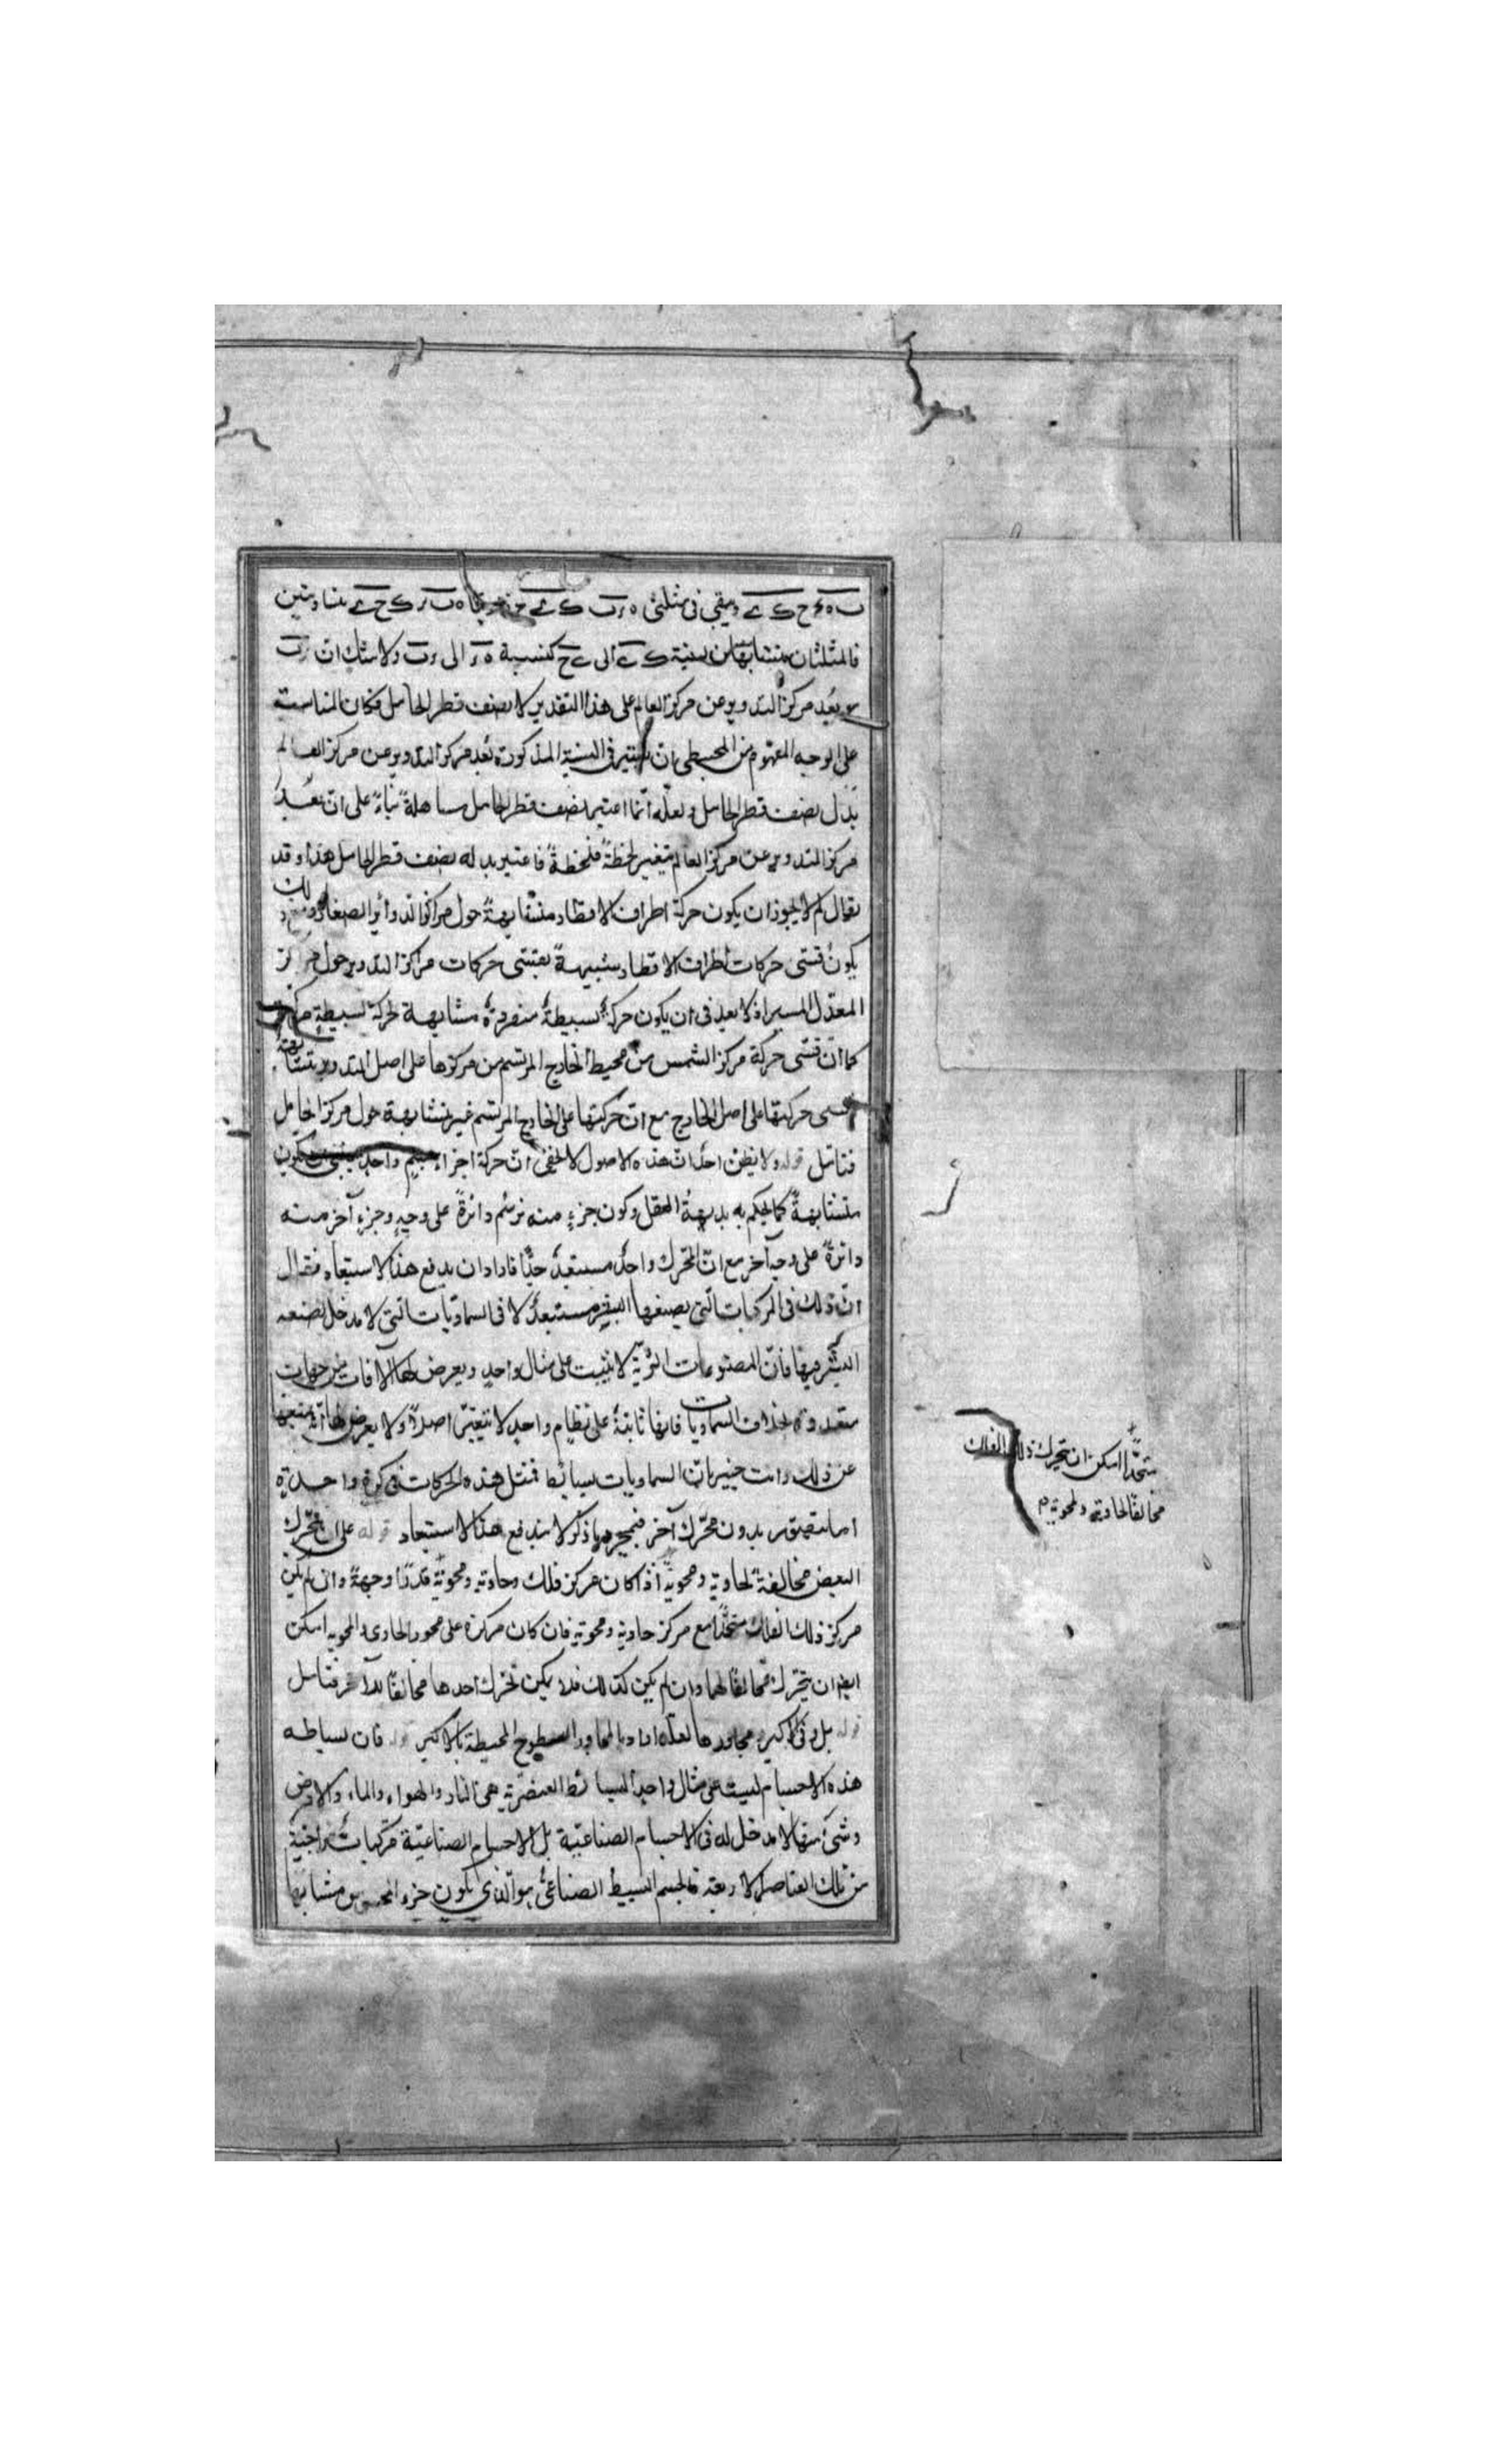 ويبقى في مثلثي ه ر ب ك ى ح متساويتين
فالمثلثان متشابهان نسبة ك ى الى ى ح كنسبة ه ر الى ر ب ولا شك ان ر ب
بعد مركز التدوير عن مركز العالم على هذا التقدير لا نصف قطر الحامل فكان المناسب
على الوجه المفهوم من المجسطى ان يعتبر في النسبة المذكورة بُعد مركز التدوير عن مركز العالم
بدل نصف قطر الحامل ولعلّه انّما اعتبر نصف قطر الحامل مساهلةً بناءً على انّ بُعد
مركز التدوير عن مركز العالم يتغير لحظةً فلحظةً فاعتبر بدله نصف قطر الحامل هذا وقد
يقال لم لا يجوز ان يكون حركة اطراف الاقطار متشابهةً حول مراكز الدوائر الصغار ومع ذلك
يكون قسى حركات اطراف الاقطار شبيهةً بقسى حركات مراكز التدوير حول مركز
المعدّل المسير اذ لا بعد في ان يكون حركةٌ بسيطةٌ منفردةٌ مشابهة لحركة بسيطةٍ
كما انّ قسى حركة مركز الشمس من محيط الخارج المرتسم من مركزها على اصل التدوير تشابه
قسى حركتها على اصل الخارج مع انّ حركتها على الخارج المرتسم غير متشابهة حول مركز الحامل
فتأمّل قوله ولا يظن احدٌ ان هذه الاصول لا يخفى انّ حركة اجزاء جسمٍ واحدٍ ينبغى ان يكون
متشابهةً كما يحكم به بديهةُ العقل وكون جزءٍ منه يرسُم دائرةً على وجهٍ وجزءٍ آخر منه
دائرةً على وجه آخر مع انّ المحرّك واحدٌ مستبعدٌ جدًّا فاراد ان يدفع هذا الاستبعاد فقال
انّ ذلك في المركبات التي يصنعها البشر مستبعدٌ لا في السماويّات التي لا مدخل لصنعه
البشر فيها فانّ المصنوعات البشريّة لا تثبت على مثال واحدٍ ويعرض لها الآفات من جهات
متعددة بخلاف السماويات فانها ثابتةٌ على نظام واحدٍ لا يتغيّر اصلاً ولا يعرض لها آفة تمنعها
عن ذلك وانت خبير بانّ السماويات بسائط فمثل هذه الحركات في كرةٍ واحدةٍ
انما يتصوّر بدون محرّك آخر فبمجرد ما ذكر لا يندفع هذا الاستبعاد قوله على ان يتحرّك
البعض مخالفةً لحاويه ومحويّه اذا كان مركز فلك وحاويه ومحويّه قدرًا وجهةً وان لم يكن
مركز ذلك الفلك متّحدًا مع مركز حاويه ومحويّه فان كان مركزه على محور الحاوى والمحويه امكن
ايضا ان يتحرّك مخالفًا لهما وان لم يكن كذلك فلا يمكن تحرّك احدها مخالفًا للآخر فتأمل
قوله بل وفي اكبر مجاورها لعلّه اراد بالمجاور السطوح المحيطة بالاكبر قوله فان بساطه
هذه الاجسام ليست على مثال واحد البسائط العنصريّة هى النار والهواء والماء والارض
وشئ منها لا مدخل له في الاجسام الصناعيّة بل الاجسام الصناعيّة مركباتٌ
من تلك العناصر الاربعة فالجسم البسيط الصناعىّ هو الذي يكون جزءه المحسوس مشابها
متّحدًا امكن ان يتحرك ذلك الفلك
مخالفًا لحاويه ولمحويّه م